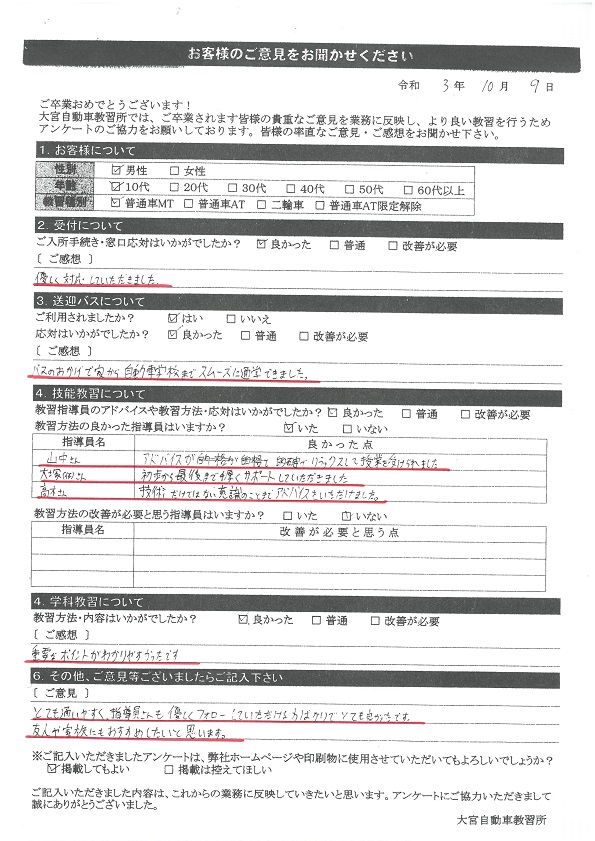 お客様のご意見をお聞かせください
令和 3年 10月 9日
ご卒業おめでとうございます！
大宮自動車教習所では、ご卒業されます皆様の貴重なご意見を業務に反映し、より良い教習を行うため
アンケートのご協力をお願いしております。皆様の率直なご意見・ご感想をお聞かせ下さい。
1. お客様について
性別 ☑男性 □女性
年齢 ☑10代 □20代 □30代 □40代 □50代 □60代以上
教習種別 ☑普通車MT □普通車AT □二輪車 □普通車AT限定解除
2. 受付について
ご入所手続き・窓口応対はいかがでしたか？ ☑良かった □普通 □改善が必要
〔 ご感想 〕
優しく対応していただきました。
3. 送迎バスについて
ご利用されましたか？ ☑はい □いいえ
応対はいかがでしたか？ ☑良かった □普通 □改善が必要
〔 ご感想 〕
バスのおかげで家から自動車学校までスムーズに通学できました。
4. 技能教習について
教習指導員のアドバイスや教習方法・応対はいかがでしたか？ ☑良かった □普通 □改善が必要
教習方法の良かった指導員はいますか？ ☑いた □いない
指導員名 良かった点
山中さん アドバイスが 的確で リラックスして授業を受けられました
大塚さん 初歩から最後まで サポートしていただきました
高木さん 技術だけではない意識のことまでアドバイスをいただけました。
教習方法の改善が必要と思う指導員はいますか？ □いた ☑いない
指導員名 改善が必要と思う点
4. 学科教習について
教習方法・内容はいかがでしたか？ ☑良かった □普通 □改善が必要
〔 ご感想 〕
重要なポイントがわかりやすかったです
6. その他、ご意見等ございましたらご記入下さい
〔 ご意見 〕
とても通いやすく、指導員さんも優しくフォローしていただける方ばかりでとても良かったです。
友人や家族にもおすすめしたいと思います。
※ご記入いただきましたアンケートは、弊社ホームページや印刷物に使用させていただいてもよろしいでしょうか？
☑掲載してもよい □掲載は控えてほしい
ご記入いただきました内容は、これからの業務に反映していきたいと思います。アンケートにご協力いただきまして
誠にありがとうございました。
大宮自動車教習所